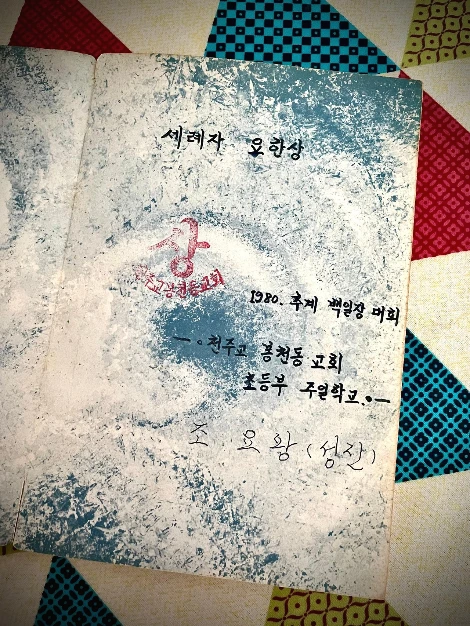 세례자 요한상
상
천주교봉천동교회
1980. 추계 백일장 대회
— 천주교 봉천동 교회
초등부 주일학교. —
조 요왕 (성잔)